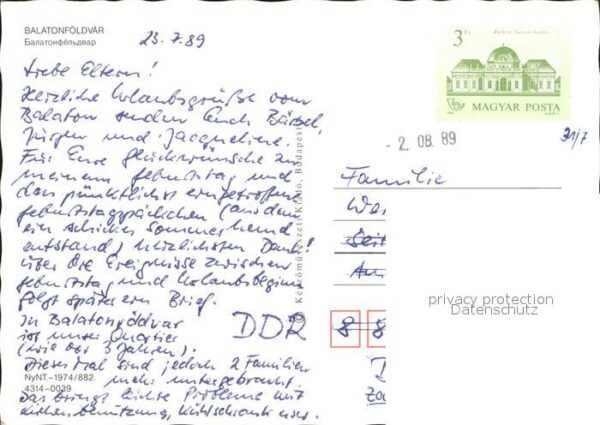 BALATONFÖLDVÁR
Балатонфёльдвар
23.7.89
Liebe Eltern!
Herzliche Urlaubsgrüße vom
Balaton senden Euch Bärbel,
Jürgen und Jacqueline.
Für Eure Glückwünsche zu
meinem Geburtstag und
das pünktlichst eingetroffene
Geburtstagspäckchen (aus dem
ein schickes Sommerhemd
entstand) herzlichsten Dank!
Über die Ereignisse zwischen
Geburtstag und Urlaubsbeginn
folgt später ein Brief.
In Balatonföldvar
ist unser Quartier
(wie vor 3 Jahren).
Diesmal sind jedoch 2 Familien
mehr untergebracht.
Das bringt leichte Probleme mit
Küchenbenutzung, Kühlschrank usw.
NyNT.–1974/882.
4314–0039
Képzőművészeti Kiadó, Budapest
3 Ft
MAGYAR POSTA
- 2. 08. 89
31/7
Familie
DDR
8 8
privacy protection
Datenschutz